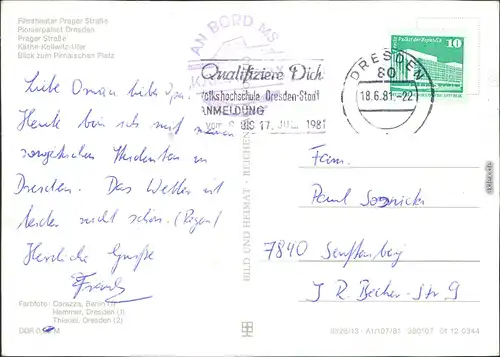 Filmtheater Prager Straße
Pionierpalast Dresden
Prager Straße
Käthe-Kollwitz-Ufer
Blick zum Pirnaischen Platz
AN BORD MS
Qualifiziere Dich
Volkshochschule Dresden-Stadt
ANMELDUNG
BIS 17. JULI 1981
DRESDEN
80
18.6.81.-22
10
Liebe Oma, liebe Opa,
Heute bin ich mit meinen
sowjetischen Studenten in
Dresden. Das Wetter ist
leider nicht schön. (Regen)
Herzliche Grüße
Frank
Fam.
Paul
7840 Senftenberg
J. R. Becher-Str 9
BILD UND HEIMAT · REICHENBACH
Farbfoto: Darazza, Berlin (1)
Hammer, Dresden (1)
Thiedel, Dresden (2)
DDR M
A1/107/81 01 12 0344